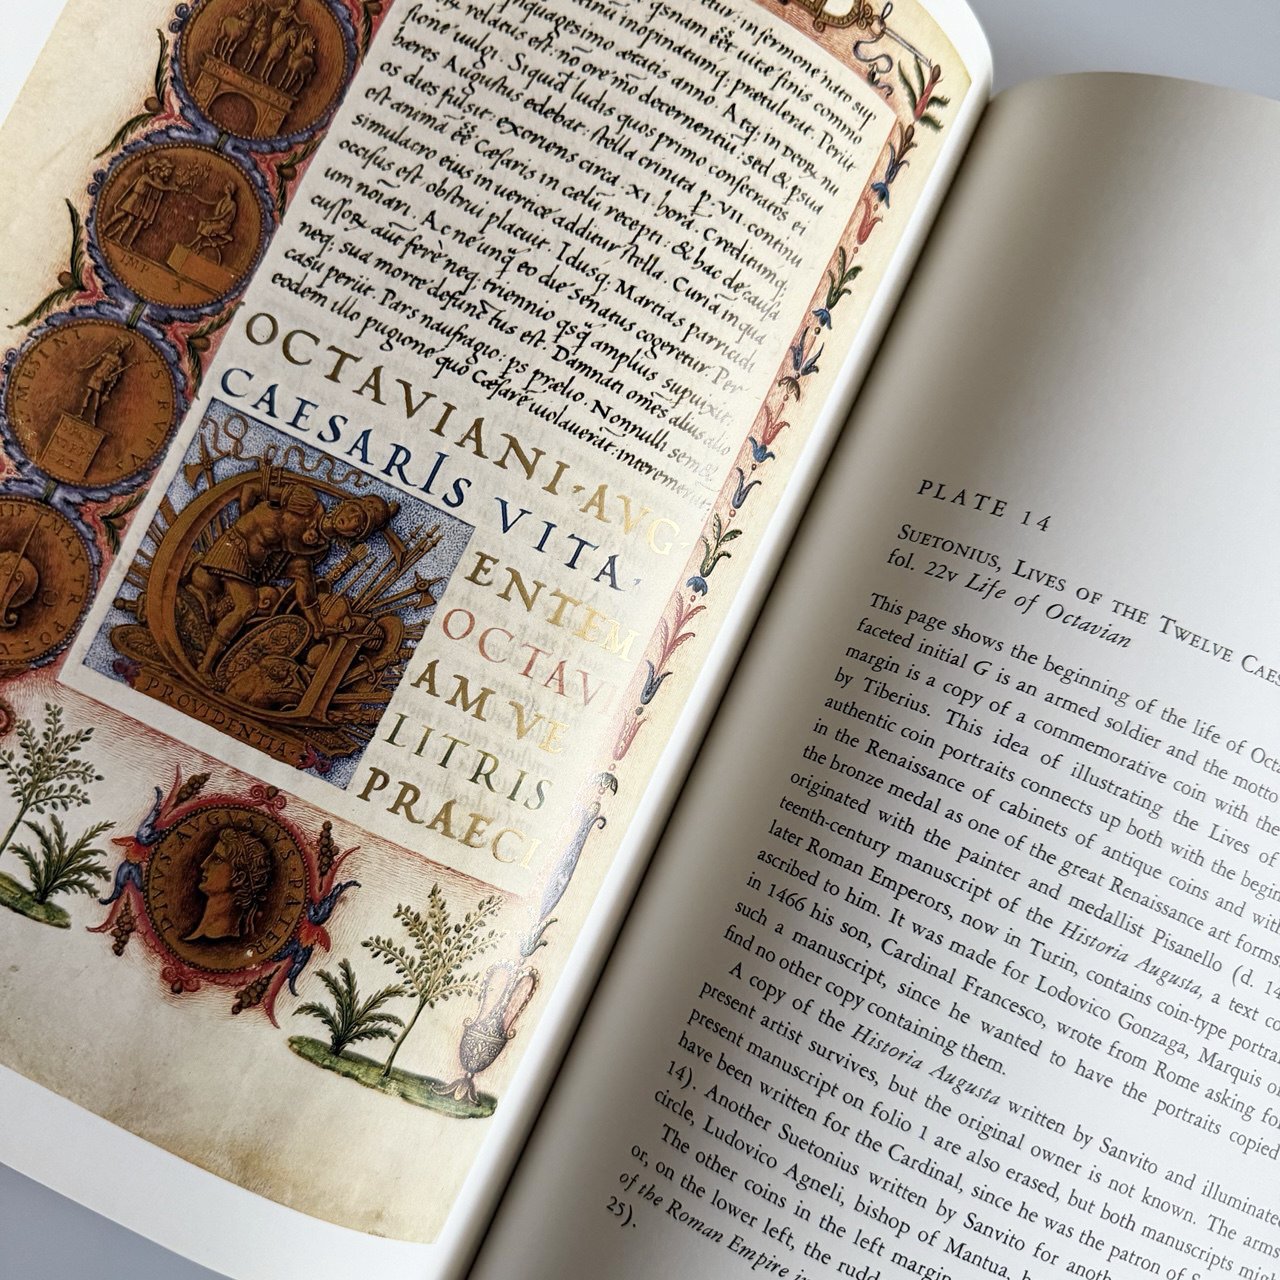 etur: in sermone nato sup
qsnam eet uitæ finis commo
tinũ inopinatumq, prætulerat. Periit
quagesimo ætatis anno. Atq; in Deorꝝ nu
ꝝ relatus est: nõ ore mõ decernentiũ: sed & psua
sione uulgi. Siquid ludis quos primo consecratos ei
hæres Augustus edebat: stella crinita p. VII. continu
os dies fulsit. exoriens circa .XI. horã. Creditumq;
est animã ee Cæsaris in cælũ recepti: & hac de causa
simulacro eius in uertice additur stella. Curiã in qua
occisus est, obstrui placuit. Idusq; Martias parricidi
um noĩari. Ac ne unq̃ eo die Senatus cogeretur. Per
cussoꝝ aũt ferè neq; triennio qsq̃ amplius supuixit:
neq; sua morte defunctus est. Damnati omẽs alius alio
casu periit. Pars naufragio: ps prælio. Nonnulli semet
eodem illo pugione quo Cæsarẽ uiolauerãt: interemerunt.
OCTAVIANI·AVG
CAESARIS VITA·
ENTEM
OCTAVI
AM VE
LITRIS
PRAECI
PROVIDENTIA·
DIVVS·AVGVSTVS·PATER
IMP
X
PLATE 14
SUETONIUS, LIVES OF THE TWELVE CAES
fol. 22v Life of Octavian
This page shows the beginning of the life of Octa
faceted initial G is an armed soldier and the motto
margin is a copy of a commemorative coin with the
by Tiberius. This idea of illustrating the Lives of
authentic coin portraits connects up both with the begin
in the Renaissance of cabinets of antique coins and with
the bronze medal as one of the great Renaissance art forms.
originated with the painter and medallist Pisanello (d. 14
teenth-century manuscript of the Historia Augusta, a text co
later Roman Emperors, now in Turin, contains coin-type portrai
ascribed to him. It was made for Lodovico Gonzaga, Marquis of
in 1466 his son, Cardinal Francesco, wrote from Rome asking for
such a manuscript, since he wanted to have the portraits copied
find no other copy containing them.
A copy of the Historia Augusta written by Sanvito and illuminated
present artist survives, but the original owner is not known. The arms
present manuscript on folio 1 are also erased, but both manuscripts migh
have been written for the Cardinal, since he was the patron of S
14). Another Suetonius written by Sanvito for anothe
circle, Ludovico Agneli, bishop of Mantua,
The other coins in the left margin
or, on the lower left, the rudd
of the Roman Empire
25).